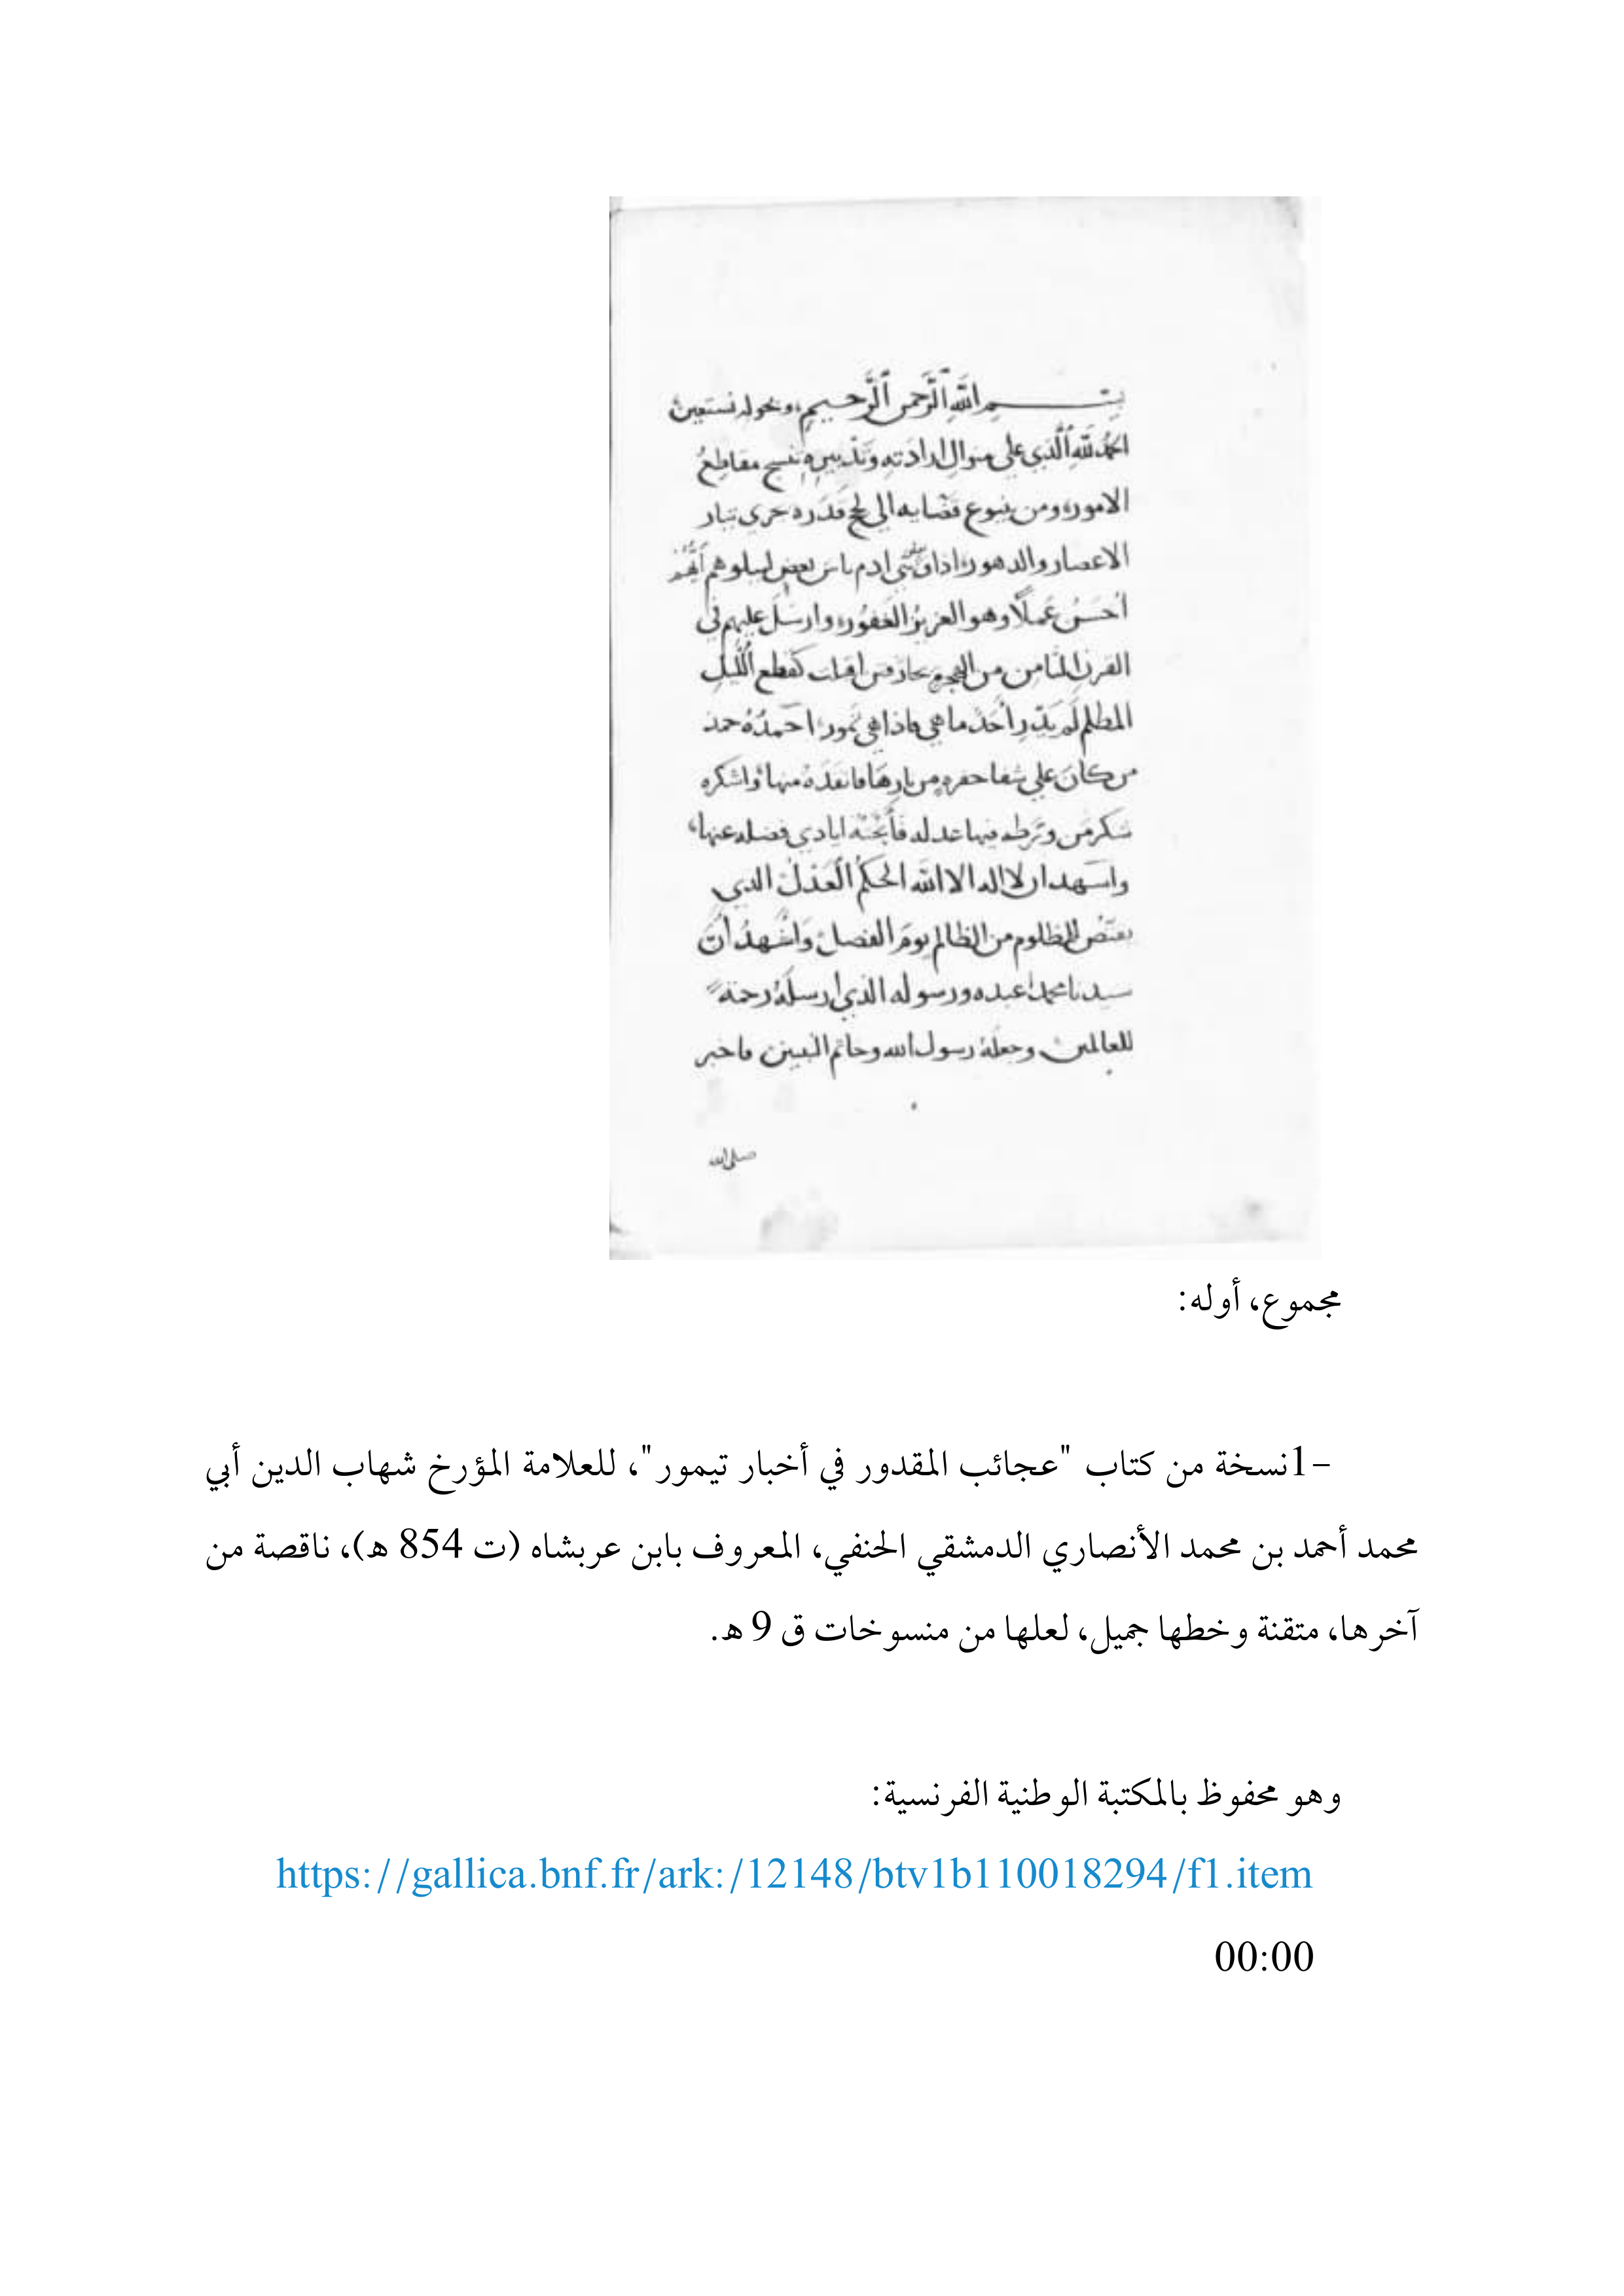 بسم الله الرحمن الرحيم، وبحوله نستعين
الحمد لله الذي علي منوال ارادته وتدبيره نسج مقاطع
الامور، ومن ينبوع قضايه الي لج قدره جري تيار
الاعصار والدهور، اذاق بني ادم باس بعض ليبلوهم ايهم
أحسن عملا وهو العزيز الغفور، وارسل عليهم في
القرن الثامن من الهجرة بحار فتن اقبلت كقطع الليل
المظلم لم يدر أحد ما هي فاذا هي تمور، احمده حمد
من كان علي شفا حفره من نارها فانقده منها، واشكره
شكر من ورطه فيها عدله فأنجته ايادي فضله عنها،
واسهد ان لا اله الا الله الحكم العدل الذي
يقتص للمظلوم من الظالم يوم الفصل وأشهد أن
سيدنا محمدا عبده ورسوله الذي ارسله رحمة
للعالمين وجعله رسول الله وخاتم النبيين فاخبر
صلى الله
مجموع، أوله:
-1نسخة من كتاب "عجائب المقدور في أخبار تيمور"، للعلامة المؤرخ شهاب الدين أبي
محمد أحمد بن محمد الأنصاري الدمشقي الحنفي، المعروف بابن عربشاه (ت 854 ه)، ناقصة من
آخرها، متقنة وخطها جميل، لعلها من منسوخات ق 9 ه.
وهو محفوظ بالمكتبة الوطنية الفرنسية:
https://gallica.bnf.fr/ark:/12148/btv1b110018294/f1.item
00:00